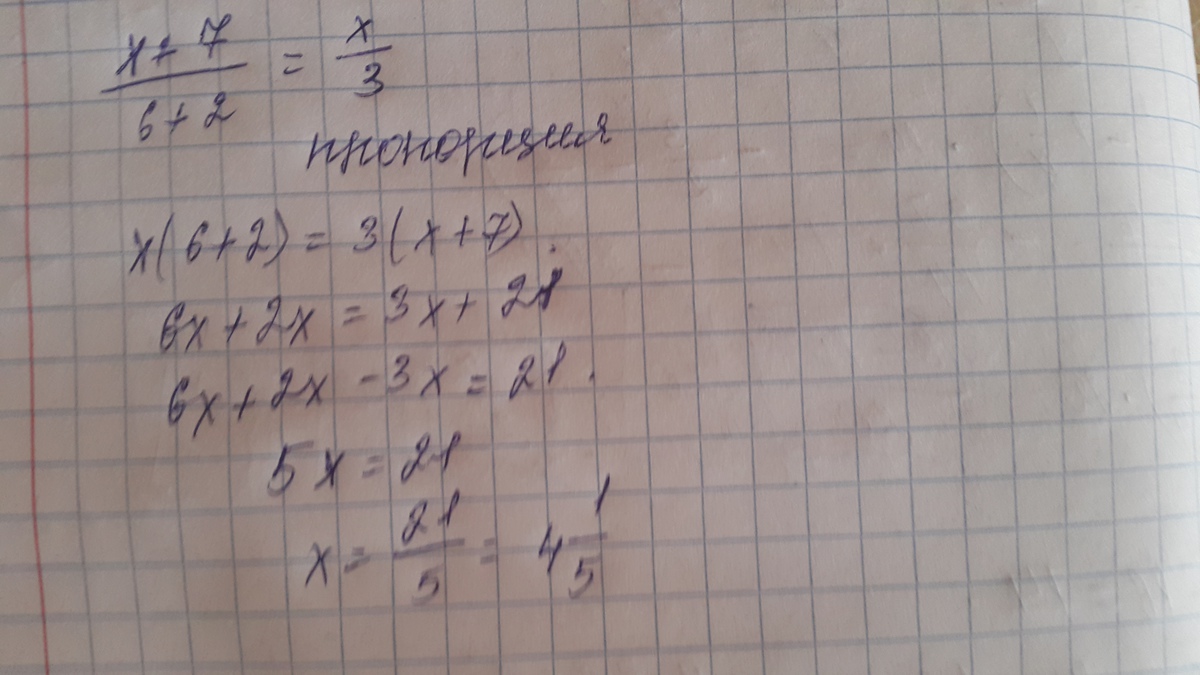 x + 7 / 6 + 2 = x / 3
пропорция
x(6+2) = 3(x+7).
6x + 2x = 3x + 21
6x + 2x - 3x = 21.
5x = 21
x = 21/5 = 4 1/5